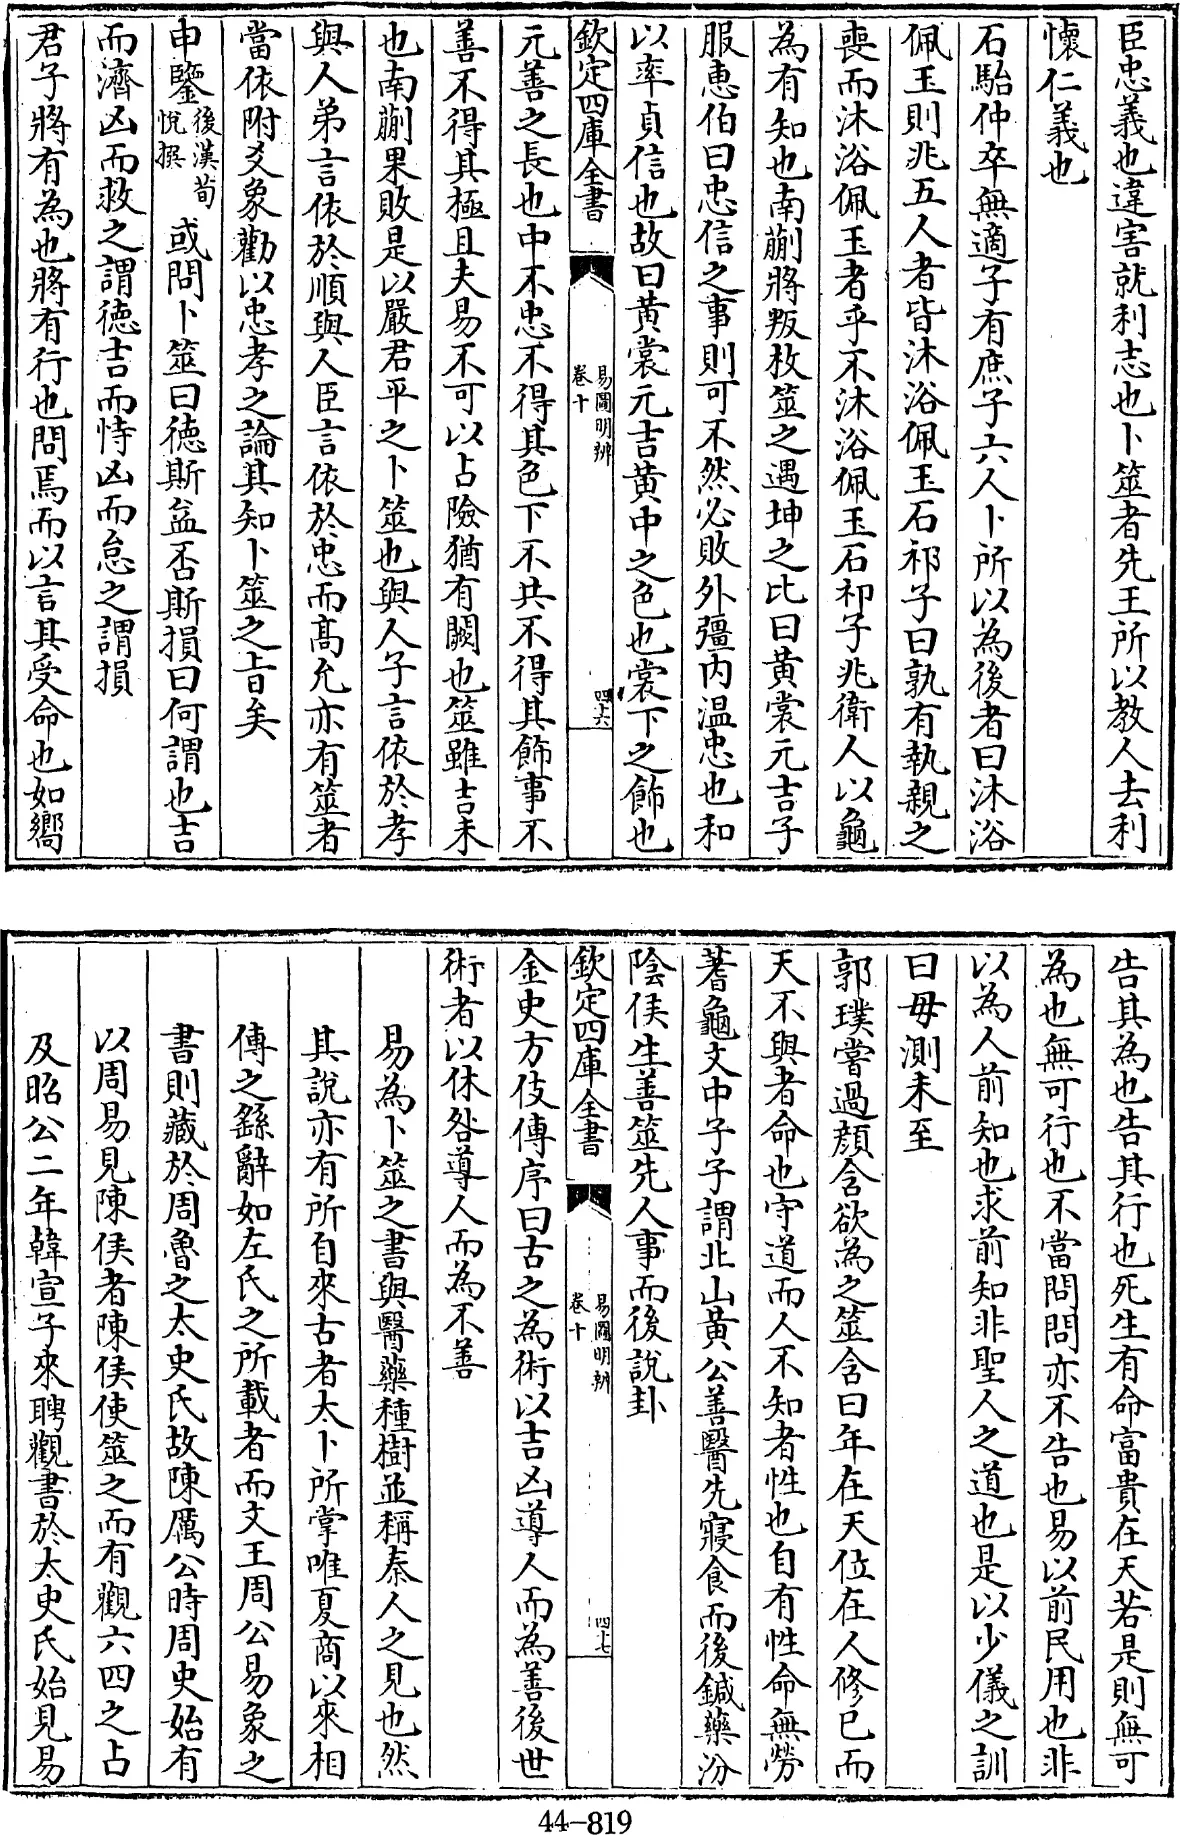 臣忠義也違害就利志也卜筮者先王所以教人去利
懷仁義也
石駘仲卒無適子有庶子六人卜所以為後者曰沐浴
佩玉則兆五人者皆沐浴佩玉石祁子曰孰有執親之
喪而沐浴佩玉者乎不沐浴佩玉石祁子兆衛人以龜
為有知也南蒯將叛枚筮之遇坤之比曰黄裳元吉子
服惠伯曰忠信之事則可不然必敗外彊内温忠也和
以率貞信也故曰黄裳元吉黄中之色也裳下之飾也
欽定四庫全書
易圖明辨
卷十
四十六
元善之長也中不忠不得其色下不共不得其飾事不
善不得其極且夫易不可以占險猶有闕也筮雖吉未
也南蒯果敗是以嚴君平之卜筮也與人子言依於孝
與人弟言依於順與人臣言依於忠而髙允亦有筮者
當依附爻象勸以忠孝之論其知卜筮之旨矣
申鑒後漢荀悅撰或問卜筮曰徳斯益否斯損曰何謂也吉
而濟凶而救之謂徳吉而恃凶而怠之謂損
君子將有為也將有行也問焉而以言其受命也如嚮
告其為也告其行也死生有命富貴在天若是則無可
為也無可行也不當問問亦不告也易以前民用也非
以為人前知也求前知非聖人之道也是以少儀之訓
曰毋測未至
郭璞嘗過顔含欲為之筮含曰年在天位在人修已而
天不與者命也守道而人不知者性也自有性命無勞
蓍龜文中子子謂北山黄公善醫先寢食而後鍼藥汾
陰侯生善筮先人事而後說卦
欽定四庫全書
易圖明辨
卷十
四十七
金史方伎傳序曰古之為術以吉凶導人而為善後世
術者以休咎導人而為不善
易為卜筮之書與醫藥種樹並稱秦人之見也然
其說亦有所自來古者太卜所掌唯夏商以來相
傳之繇辭如左氏之所載者而文王周公易象之
書則藏於周魯之太史氏故陳厲公時周史始有
以周易見陳侯者陳侯使筮之而有觀六四之占
及昭公二年韓宣子來聘觀書於太史氏始見易
44-819